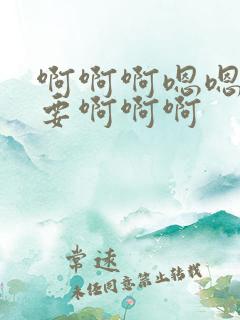 啊啊啊嗯嗯
要啊啊啊
常速
未经同意禁止转载